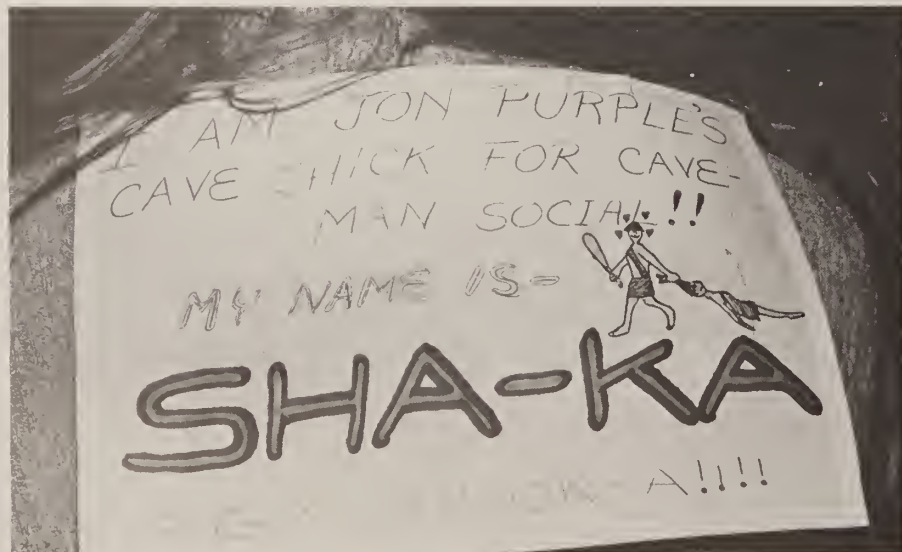 I AM JON PURPLE'S
CAVE CHICK FOR CAVE-
MAN SOCIAL!!
MY NAME IS-
SHA-KA
A!!!!